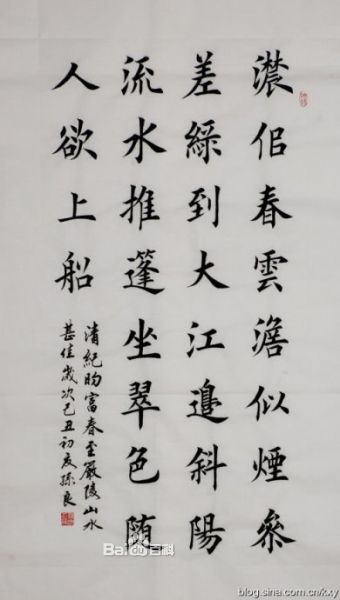 濃佀春雲澹似煙參
差綠到大江邊斜陽
流水推蓬坐翠色随
人欲上船
清紀昀富春至嚴陵山水
甚佳歲次己丑初夏孫良
Bai百科
blog.sina.com.cn/kxy